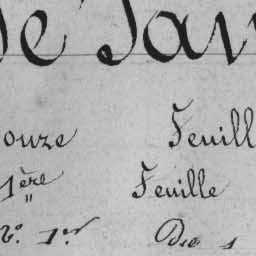 de Jan
onze Feuill
1ère Feuille
No. 1er Du 1